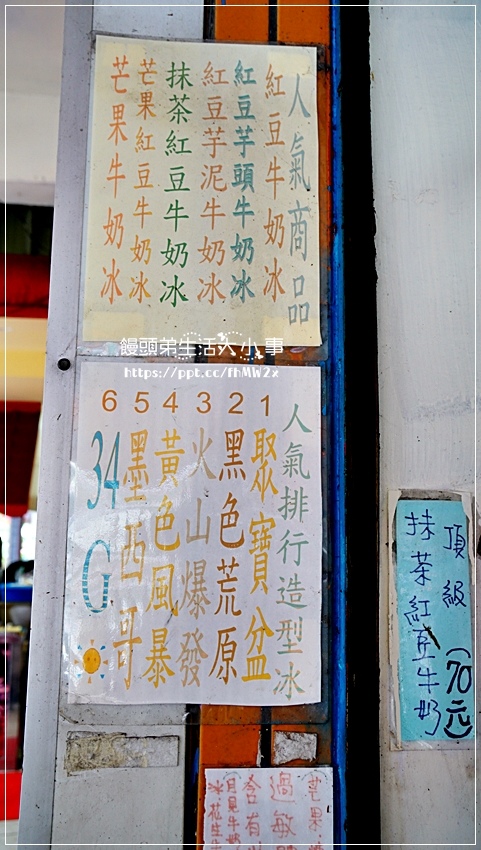 人氣商品
紅豆牛奶冰
紅豆芋頭牛奶冰
紅豆芋泥牛奶冰
抹茶紅豆牛奶冰
芒果紅豆牛奶冰
芒果牛奶冰
饅頭弟生活大小事
https://ppt.cc/fhMW2x
人氣排行造型冰
1 聚寶盆
2 黑色荒原
3 火山爆發
4 黃色風暴
5 墨西哥
6 34G
頂級(70元)
抹茶紅豆牛奶
芒果
過敏
含有
月見牛奶
冰花生